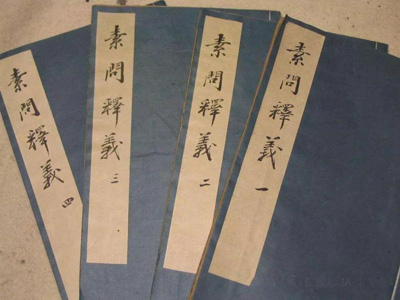 素問釋義 一
素問釋義 二
素問釋義 三
素問釋義 四